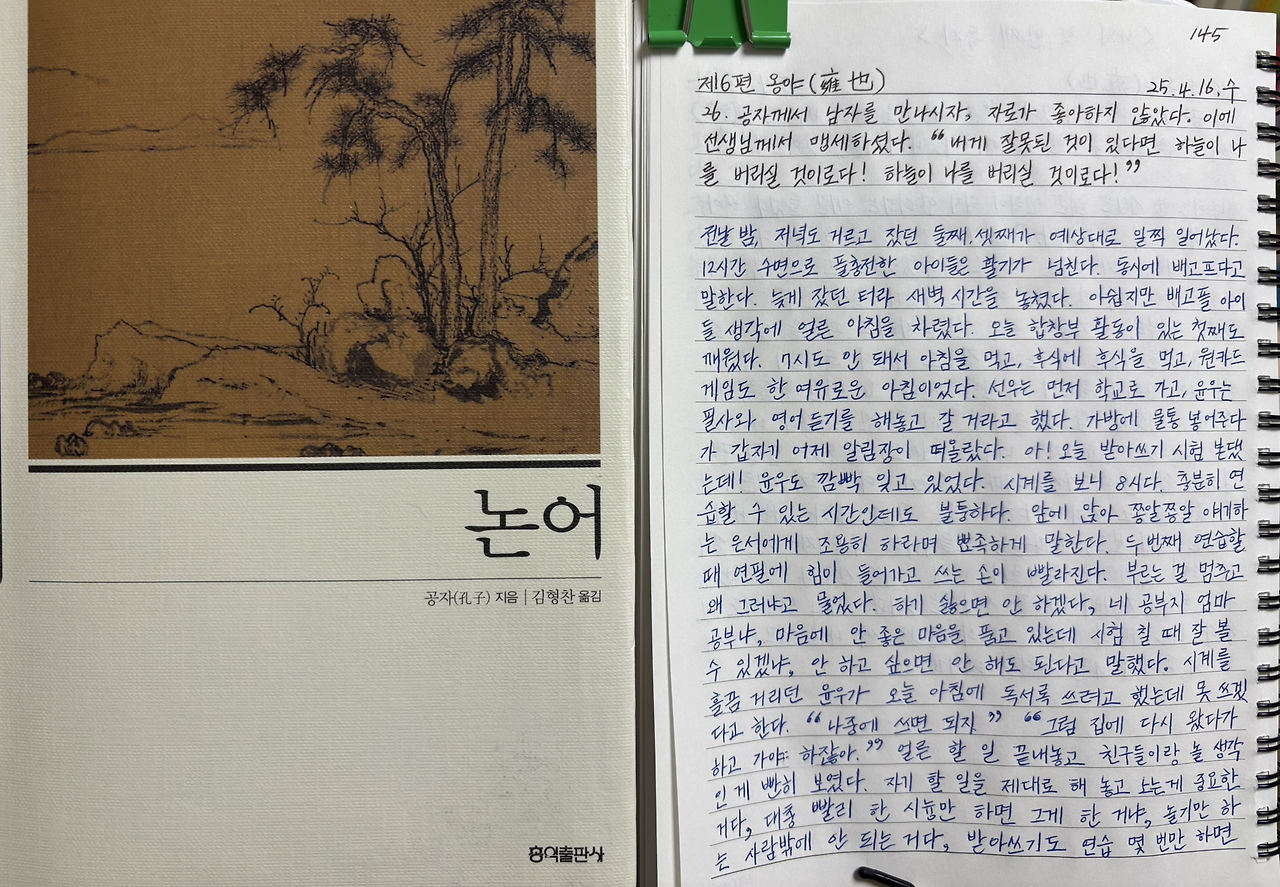 논어
공자(孔子) 지음 | 김형찬 옮김
홍익출판사
145
제6편 옹야(雍也) 25.4.16.수
26. 공자께서 남자를 만나시자, 자로가 좋아하지 않았다. 이에
선생님께서 맹세하셨다. “내게 잘못된 것이 있다면 하늘이 나
를 버리실 것이로다! 하늘이 나를 버리실 것이로다!”
전날 밤, 저녁도 거르고 잤던 둘째, 셋째가 예상대로 일찍 일어났다.
12시간 수면으로 풀충전한 아이들은 활기가 넘친다. 동시에 배고프다고
말한다. 늦게 잤던 터라 새벽 시간을 놓쳤다. 아쉽지만 배고플 아이
들 생각에 얼른 아침을 차렸다. 오늘 합창부 활동이 있는 첫째도
깨웠다. 7시도 안 돼서 아침을 먹고, 후식에 후식을 먹고, 원카드
게임도 한 여유로운 아침이었다. 선우는 먼저 학교로 가고, 윤우는
필사와 영어 듣기를 해놓고 갈 거라고 했다. 가방에 물통 넣어주다
가 갑자기 어제 알림장이 떠올랐다. 아! 오늘 받아쓰기 시험 본댔
는데! 윤우도 깜빡 잊고 있었다. 시계를 보니 8시다. 충분히 연
습할 수 있는 시간인데도 불퉁하다. 앞에 앉아 쫑알쫑알 얘기하
는 은서에게 조용히 하라며 뾰족하게 말한다. 두번째 연습할
때 연필에 힘이 들어가고 쓰는 손이 빨라진다. 부르는 걸 멈추고
왜 그러냐고 물었다. 하기 싫으면 안 하겠다, 네 공부지 엄마
공부냐, 마음에 안 좋은 마음을 품고 있는데 시험 칠 때 잘 볼
수 있겠냐, 안 하고 싶으면 안 해도 된다고 말했다. 시계를
흘끔 거리던 윤우가 오늘 아침에 독서록 쓰려고 했는데 못 쓰겠
다고 한다. “나중에 쓰면 되지” “그럼 집에 다시 왔다가
하고 가야 하잖아.” 얼른 할 일 끝내놓고 친구들이랑 놀 생각
인 게 빤히 보였다. 자기 할 일을 제대로 해 놓고 노는게 중요한
거다, 대충 빨리 한 시늉만 하면 그게 한 거냐, 놀기만 하
는 사람밖에 안 되는 거다, 받아쓰기도 연습 몇 번만 하면